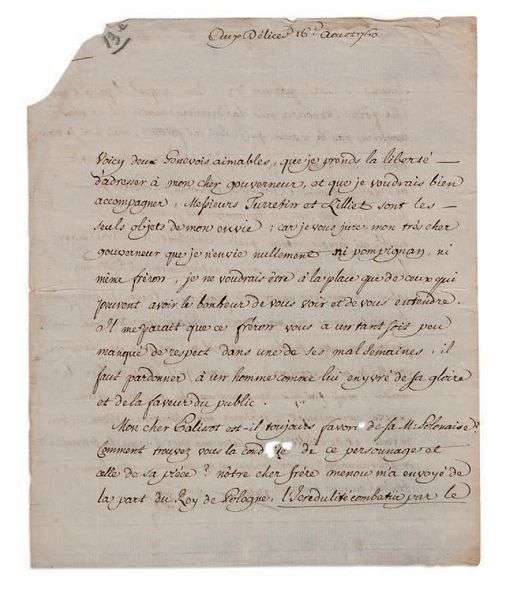 134
Aux Délices 16e Aoust 1760
Voicy deux Genevois aimables, que je prends la liberté
d'adresser à mon cher gouverneur, et que je voudrais bien
accompagner, Messieurs Turretin et Lilliet sont les
seuls objets de mon envie; car je vous jure, mon très cher
gouverneur que je n'envie nullement ni pompignan, ni
même fréron, je ne voudrais être à la place que de ceux qui
peuvent avoir le bonheur de vous voir et de vous entendre.
il me parait que ce fréron vous a un tant sois peu
manqué de respect dans une de ses mal Semaines, il
faut pardonner à un homme comme lui enyvré de sa gloire
et de la faveur du public.
Mon cher Palissot est-il toujours favori de sa M: Polonaise?
Comment trouvez vous la de ce personnage et
celle de sa pièce? nôtre cher frère menou m'a envoyé de
la part du Roy de Pologne, l'Incrédulité combatue par le